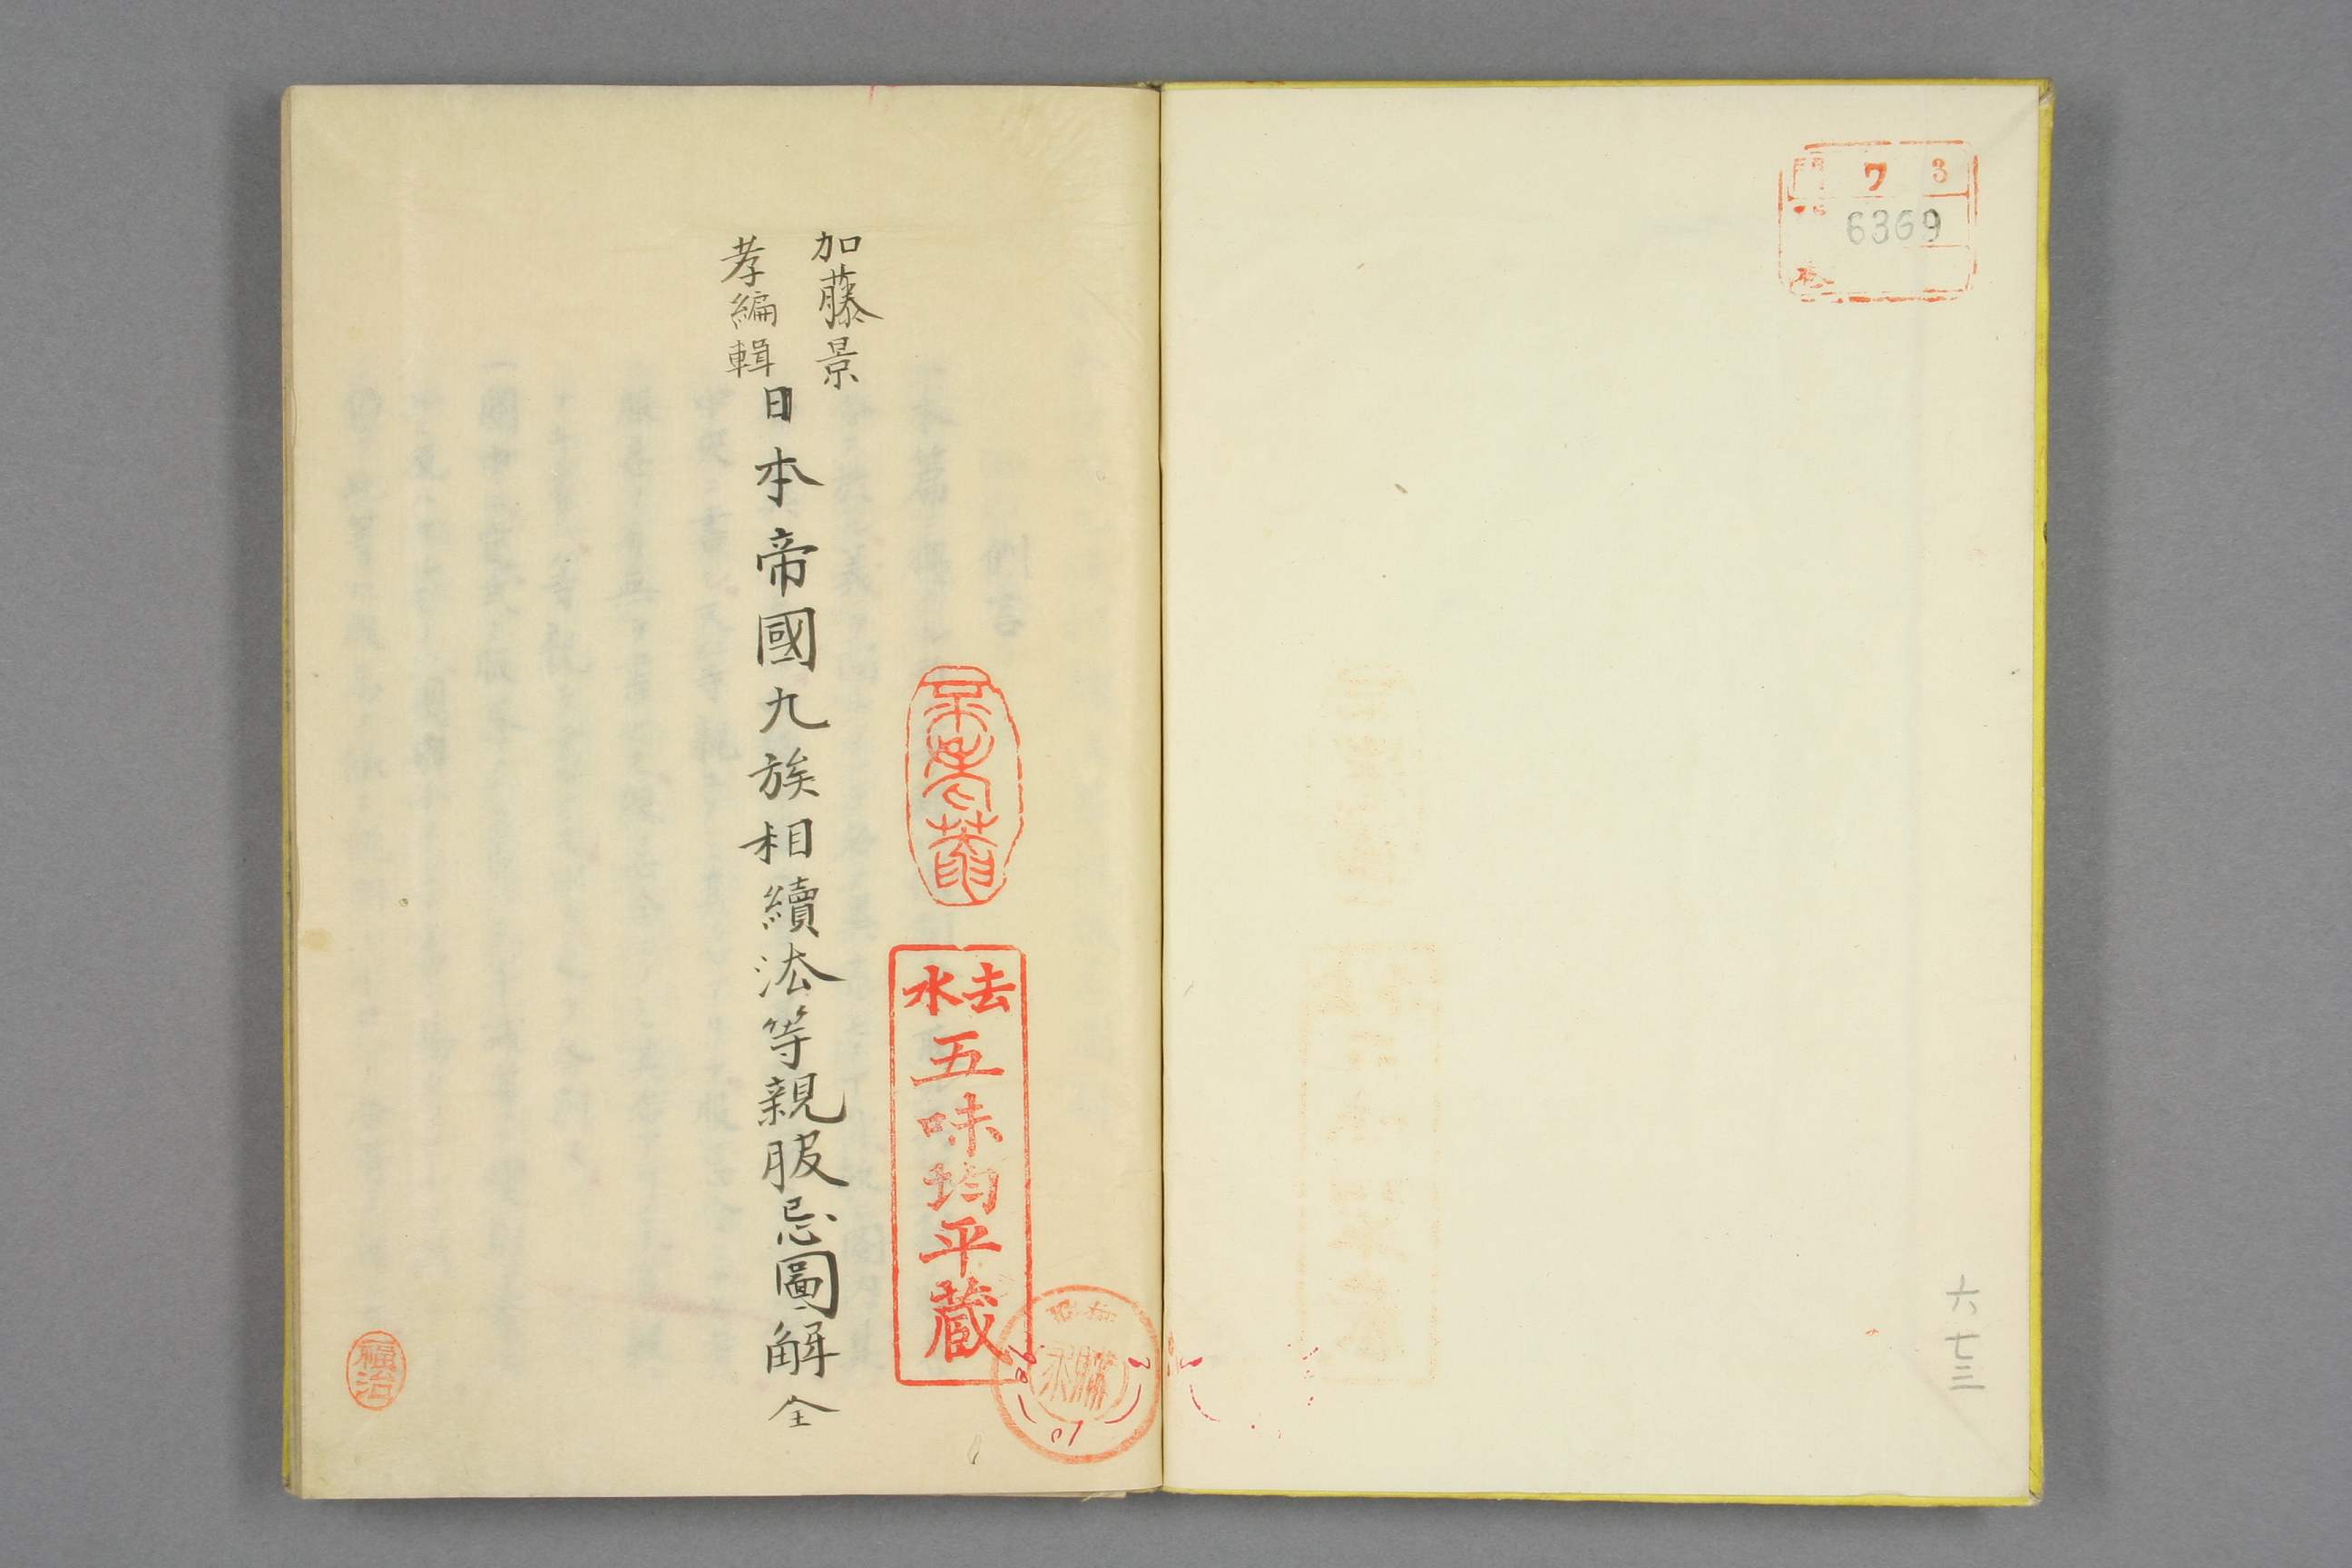 門 ワ 3
6369
六七三
去水
五味均平蔵
加藤景
孝編輯
日本帝國九族相續法等親服忌圖解 全
福治